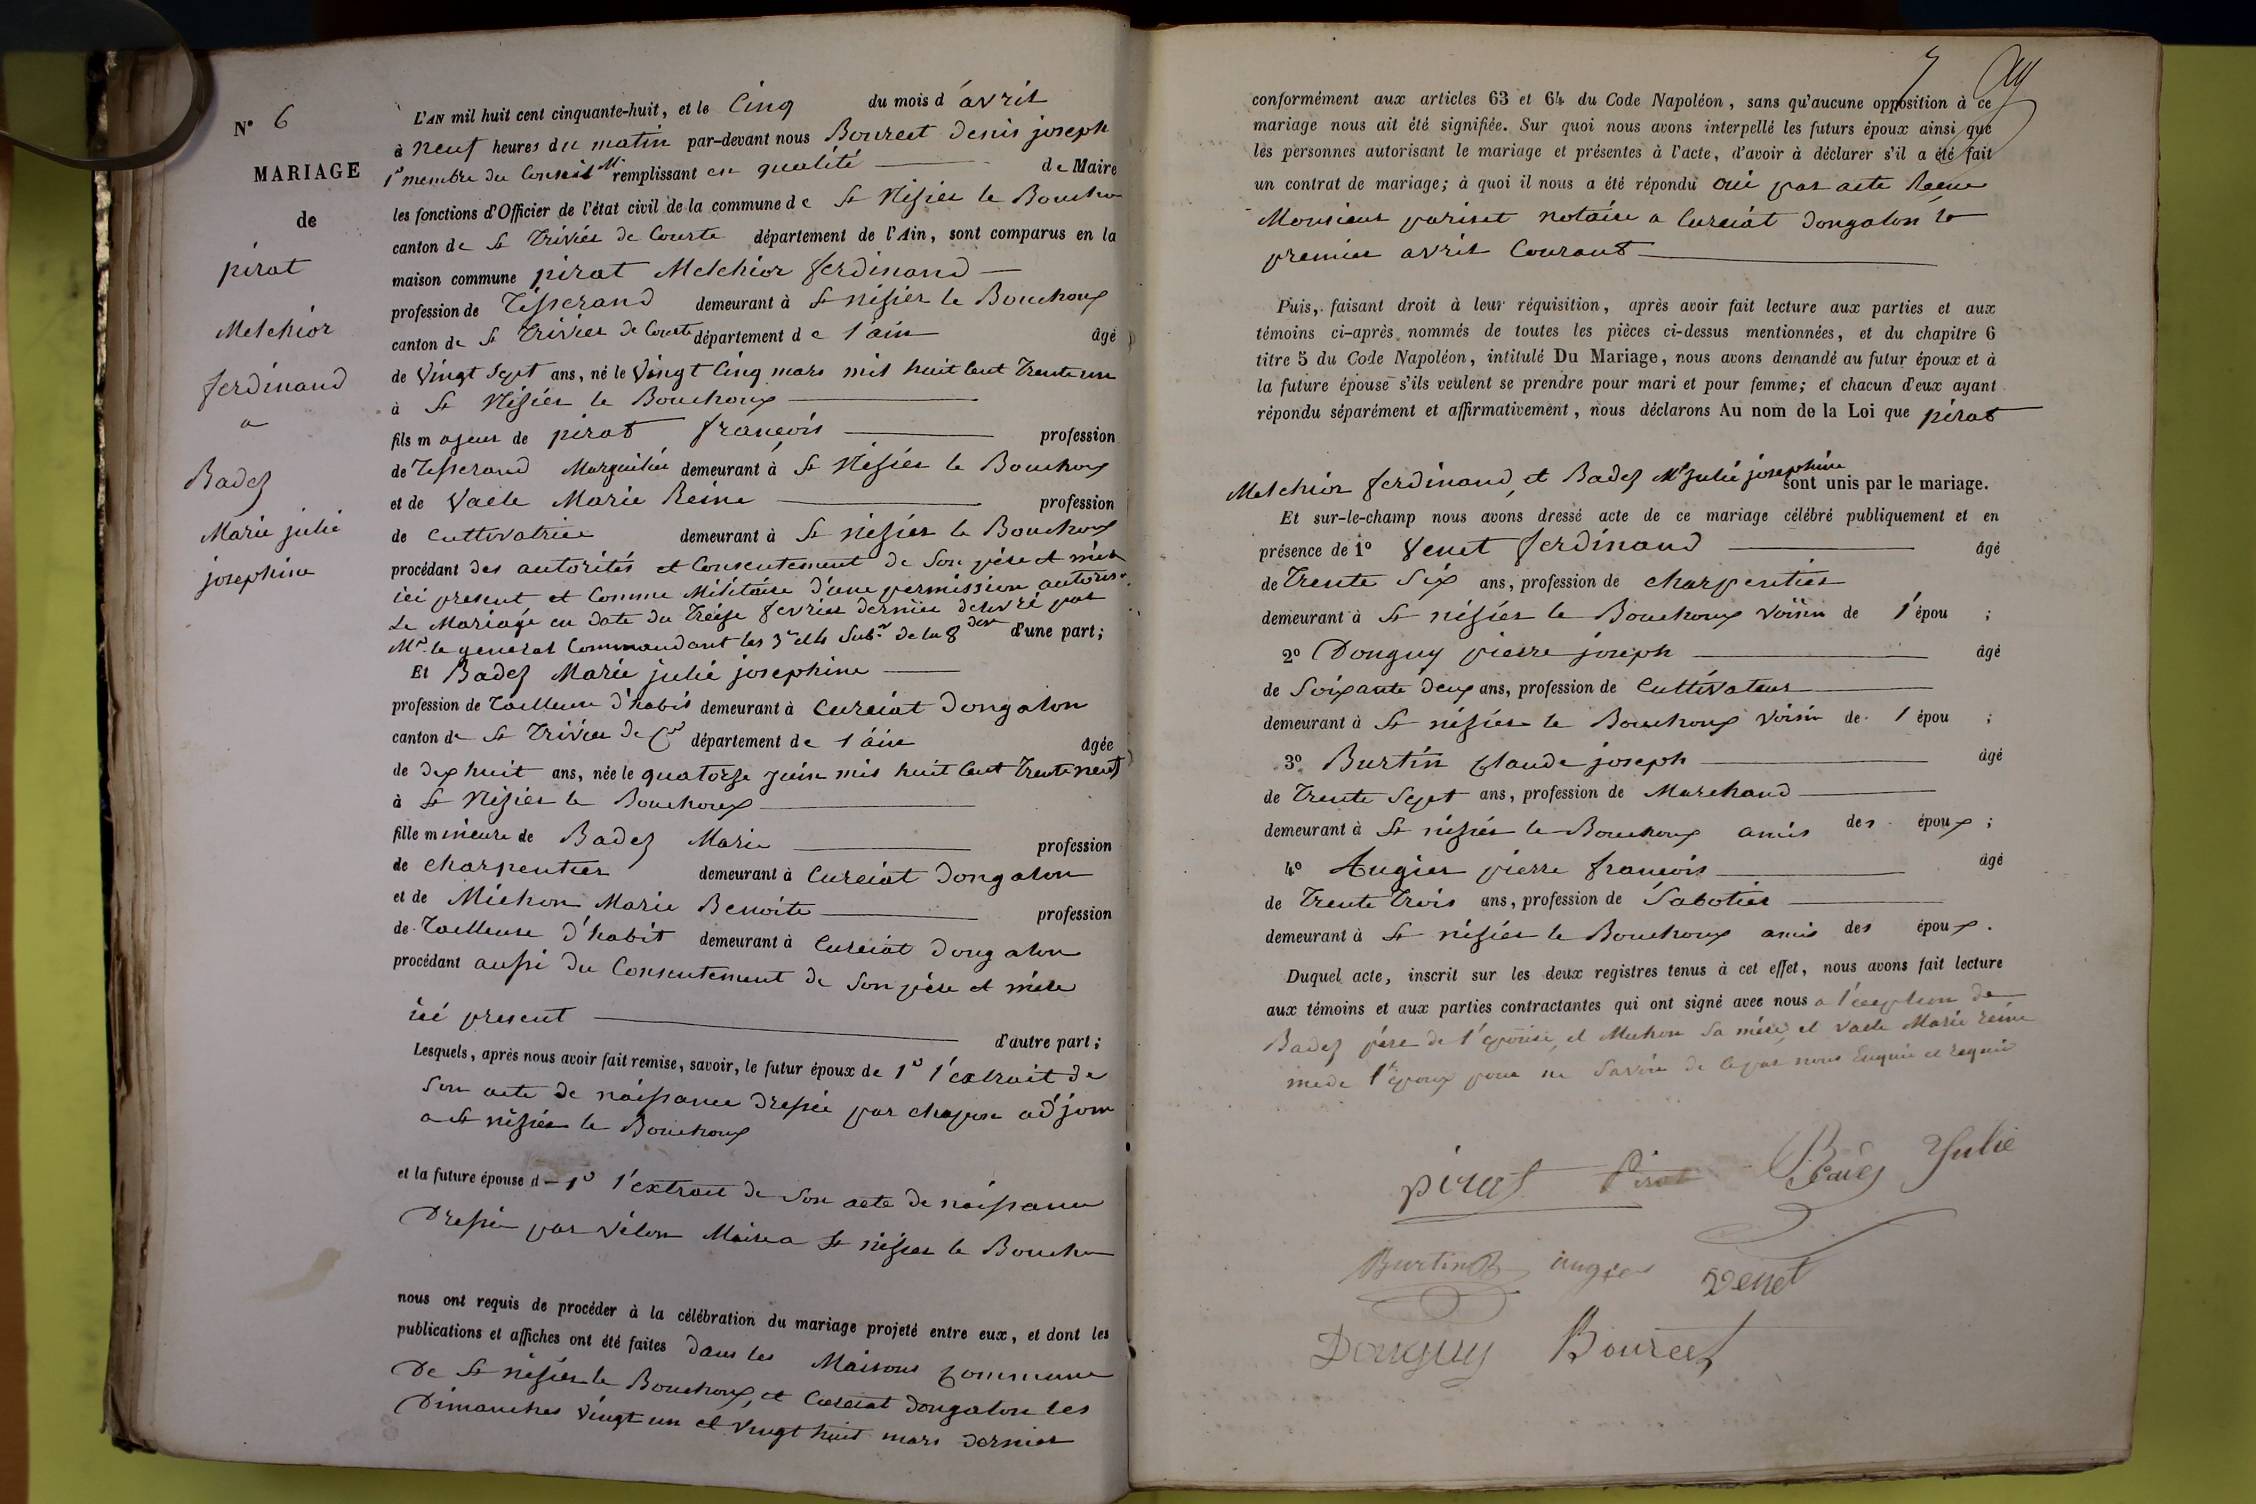 N° 6
MARIAGE
de
pirat
Melchior
ferdinand
a
Badez
Marie julie
josephine
L'AN mil huit cent cinquante-huit, et le Cinq du mois d'avril
à neuf heures du matin par-devant nous Bourcet denis joseph
1er membre du Conseil Mal remplissant en qualité de Maire
les fonctions d'Officier de l'état civil de la commune de St Nisier le Bouchou
canton de St Trivier de Courte département de l'Ain, sont comparus en la
maison commune pirat Melchior ferdinand
profession de Tisserand demeurant à St nisier le Bouchoux
canton de St Trivier de Courte département de l'ain âgé
de Vingt Sept ans, né le Vingt Cinq mars mil huit Cent Trente un
à St Nisier le Bouchoux
fils majeur de pirat francois profession
de Tisserand Marguilier demeurant à St Nisier le Bouchoux
et de Vacle Marie Reine profession
de Cultivatrice demeurant à St nisier le Bouchoux
procédant des autorités et Consentement de Son père et mère
ici present et Comme Militaire d'une permission autoris.
Le Mariage en date du Treize fevrier dernier delivré par
Mr. le general Commandant les 3e et 4 Subon de la 8 don d'une part;
Et Badez Marie julie josephine
profession de Tailleuse d'habis demeurant à Curciat Dongalon
canton de St Trivier de Cte département de l'ain âgée
de dix huit ans, née le quatorze juin mil huit Cent Trente neuf
à St Nisier le Bouchoux
fille mineure de Badez Marie profession
de charpentier demeurant à Curciat Dongalon
et de Michon Marie Benoite profession
de Tailleuse d'habit demeurant à Curciat Dongalon
procédant aussi du Consentement de Son père et mère
ici present d'autre part;
Lesquels, après nous avoir fait remise, savoir, le futur époux de 1° l'extrait de
Son acte de naissance dressée par chapon adjoin
a St nisier le Bouchoux
et la future épouse d 1° l'extrait de Son acte de naissance
Dressée par Vélon Maire a St nisier le Bouchou
nous ont requis de procéder à la célébration du mariage projeté entre eux, et dont les
publications et affiches ont été faites dans les Maisons Commune
De St nisier le Bouchoux, et Curciat Dongalon les
Dimanches Vingt un et Vingt huit mars dernier
7
conformément aux articles 63 et 64 du Code Napoléon, sans qu'aucune opposition à ce
mariage nous ait été signifiée. Sur quoi nous avons interpellé les futurs époux ainsi que
les personnes autorisant le mariage et présentes à l'acte, d'avoir à déclarer s'il a été fait
un contrat de mariage; à quoi il nous a été répondu oui par acte Recue
Monsieur pariset notaire a Curciat Dongalon le
premier avril Courant
Puis, faisant droit à leur réquisition, après avoir fait lecture aux parties et aux
témoins ci-après nommés de toutes les pièces ci-dessus mentionnées, et du chapitre 6
titre 5 du Code Napoléon, intitulé Du Mariage, nous avons demandé au futur époux et à
la future épouse s'ils veulent se prendre pour mari et pour femme; et chacun d'eux ayant
répondu séparément et affirmativement, nous déclarons Au nom de la Loi que pirat
Melchior ferdinand, et Badez Me julie josephine sont unis par le mariage.
Et sur-le-champ nous avons dressé acte de ce mariage célébré publiquement et en
présence de 1° Venet ferdinand âgé
de Trente Six ans, profession de charpentier
demeurant à St nisier le Bouchoux voisin de l'épou ;
2° Donguy pierre joseph âgé
de Soixante deux ans, profession de Cultivateur
demeurant à St nisier le Bouchoux voisin de l épou ;
3° Burtin Claude joseph âgé
de Trente Sept ans, profession de Marchand
demeurant à St nisier le Bouchoux amis des époux ;
4° Augier pierre francois âgé
de Trente Trois ans, profession de Sabotier
demeurant à St nisier le Bouchoux amis des époux.
Duquel acte, inscrit sur les deux registres tenus à cet effet, nous avons fait lecture
aux témoins et aux parties contractantes qui ont signé avec nous a l'éception de
Badez père de l'épouse, et Michon Sa mère, et Vacle Marie reine
mede l'époux pour ne Savoir de ce par nous Enquis et requis
pirat Pirat Badez Julie
Burtin B augier Venet
Donguy Bourcet